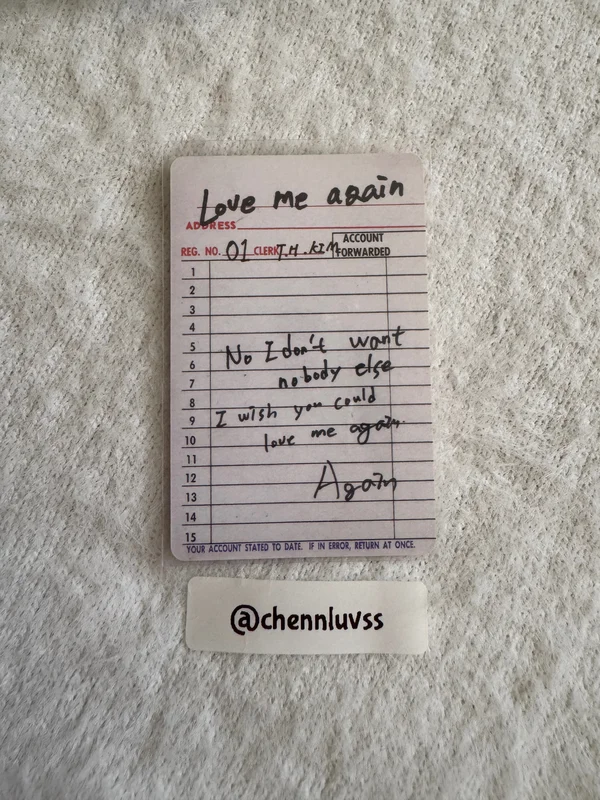 Love me again
ADDRESS
REG. NO. 01 CLERK T.H.KIM ACCOUNT FORWARDED
1
2
3
4
5
6 No I don't want
7 nobody else
8
9 I wish you could
10 love me again
11
12 Again
13
14
15
YOUR ACCOUNT STATED TO DATE. IF IN ERROR, RETURN AT ONCE.
@chennluvss